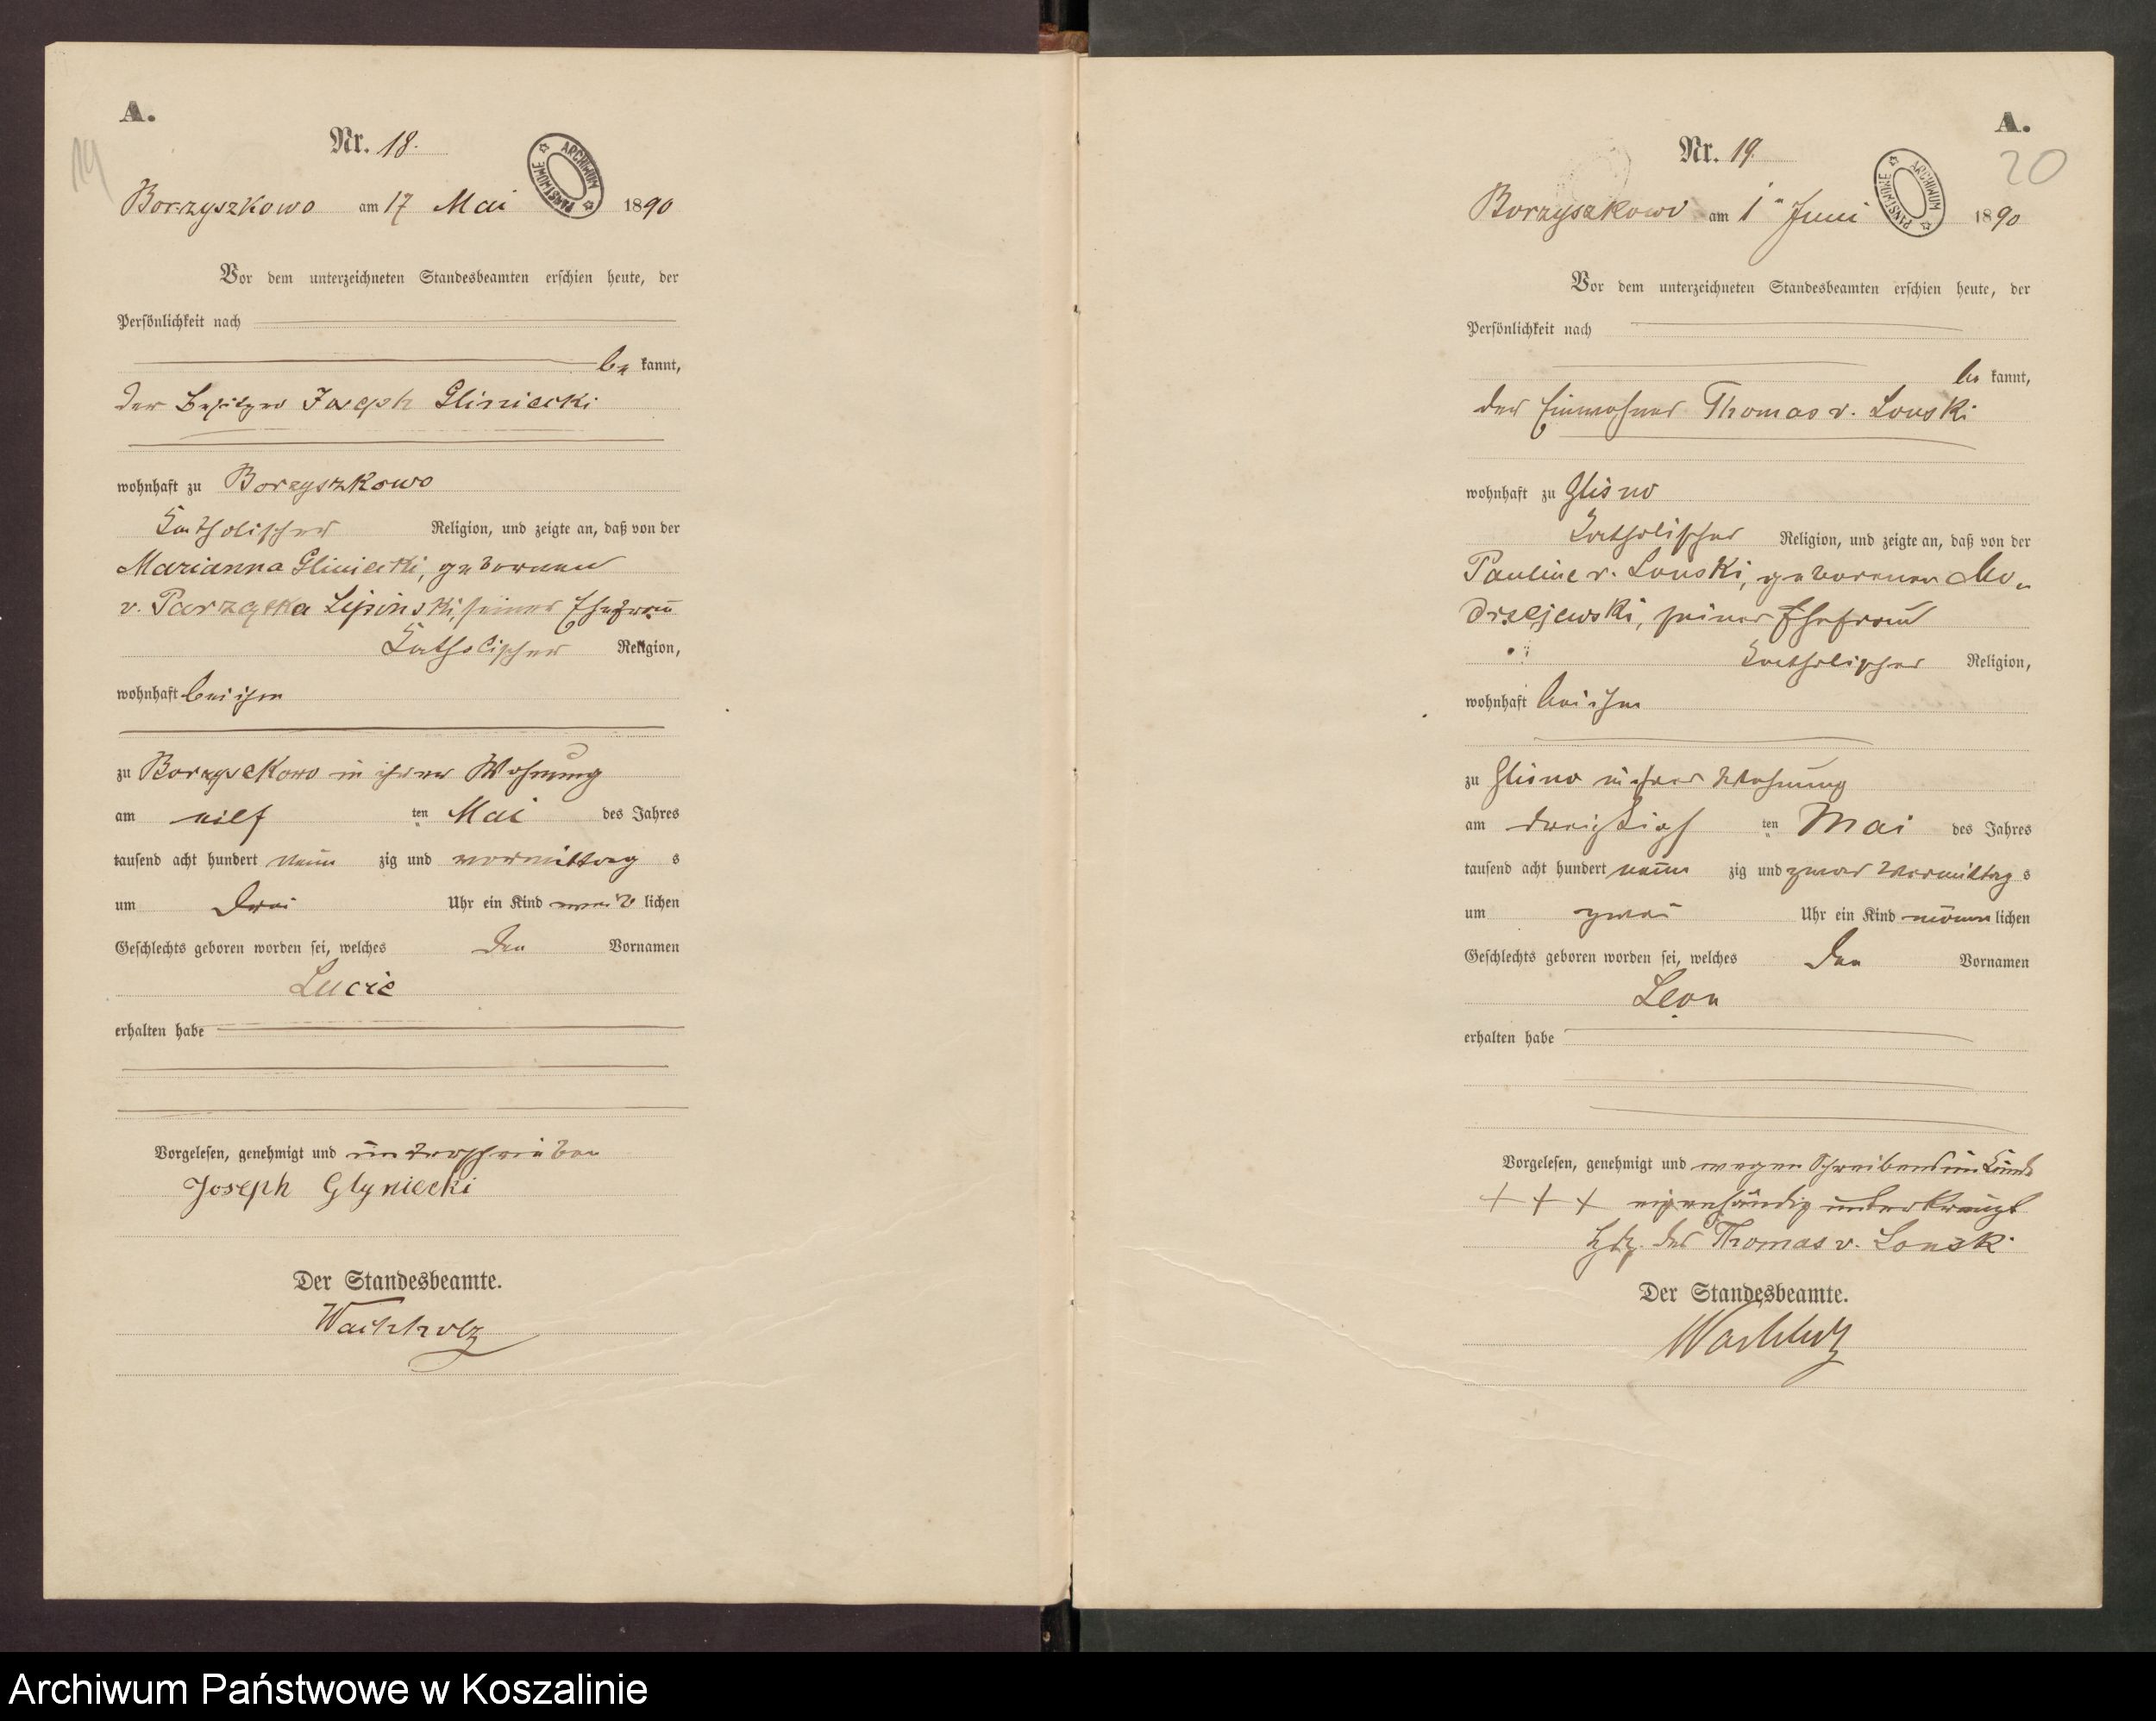 A.
Nr. 18.
19
ARCHIWUM PAŃSTWOWE
Borzyszkowo am 17 Mai 1890
Vor dem unterzeichneten Standesbeamten erschien heute, der
Persönlichkeit nach
be kannt,
der Besitzer Joseph Gliniecki
wohnhaft zu Borzyszkowo
katholischer Religion, und zeigte an, daß von der
Marianna Gliniecki, geborenen
v. Parzątka Lipinski, seiner Ehefrau
katholischer Religion,
wohnhaft bei ihm
zu Borzyszkowo in ihrer Wohnung
am eilf ten Mai des Jahres
tausend acht hundert neun zig und vormittag s
um drei Uhr ein Kind weib lichen
Geschlechts geboren worden sei, welches den Vornamen
Lucie
erhalten habe
Vorgelesen, genehmigt und unterschrieben
Joseph Glyniecki
Der Standesbeamte.
Wachholz
A.
Nr. 19.
20
ARCHIWUM PAŃSTWOWE
Borzyszkowo am 1ⁿ Juni 1890
Vor dem unterzeichneten Standesbeamten erschien heute, der
Persönlichkeit nach
be kannt,
der Einwohner Thomas v. Lonski
wohnhaft zu Glisno
katholischer Religion, und zeigte an, daß von der
Pauline v. Lonski, geborenen Mo-
drzejewski, seiner Ehefrau
katholischer Religion,
wohnhaft bei ihm
zu Glisno in ihrer Wohnung
am dreißigs ten Mai des Jahres
tausend acht hundert neun zig und zwar Vormittag s
um zwei Uhr ein Kind männ lichen
Geschlechts geboren worden sei, welches den Vornamen
Leon
erhalten habe
Vorgelesen, genehmigt und wegen Schreibensunkunde
+ + + eigenhändig unterkreuzt
Hdz. des Thomas v. Lonski
Der Standesbeamte.
Wachholz
Archiwum Państwowe w Koszalinie